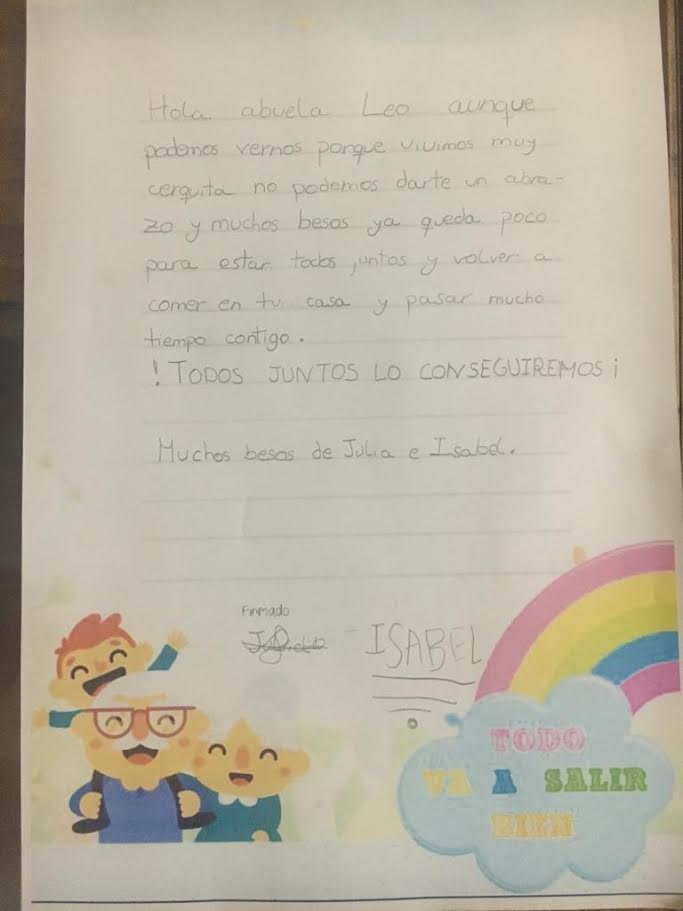 Hola abuela Leo aunque
podemos vernos porque vivimos muy
cerquita no podemos darte un abra-
zo y muchos besos ya queda poco
para estar todos juntos y volver a
comer en tu casa y pasar mucho
tiempo contigo.
! TODOS JUNTOS LO CONSEGUIREMOS ¡
Muchos besos de Julia e Isabel.
Firmado
ISABEL
TODO
VA A SALIR
BIEN